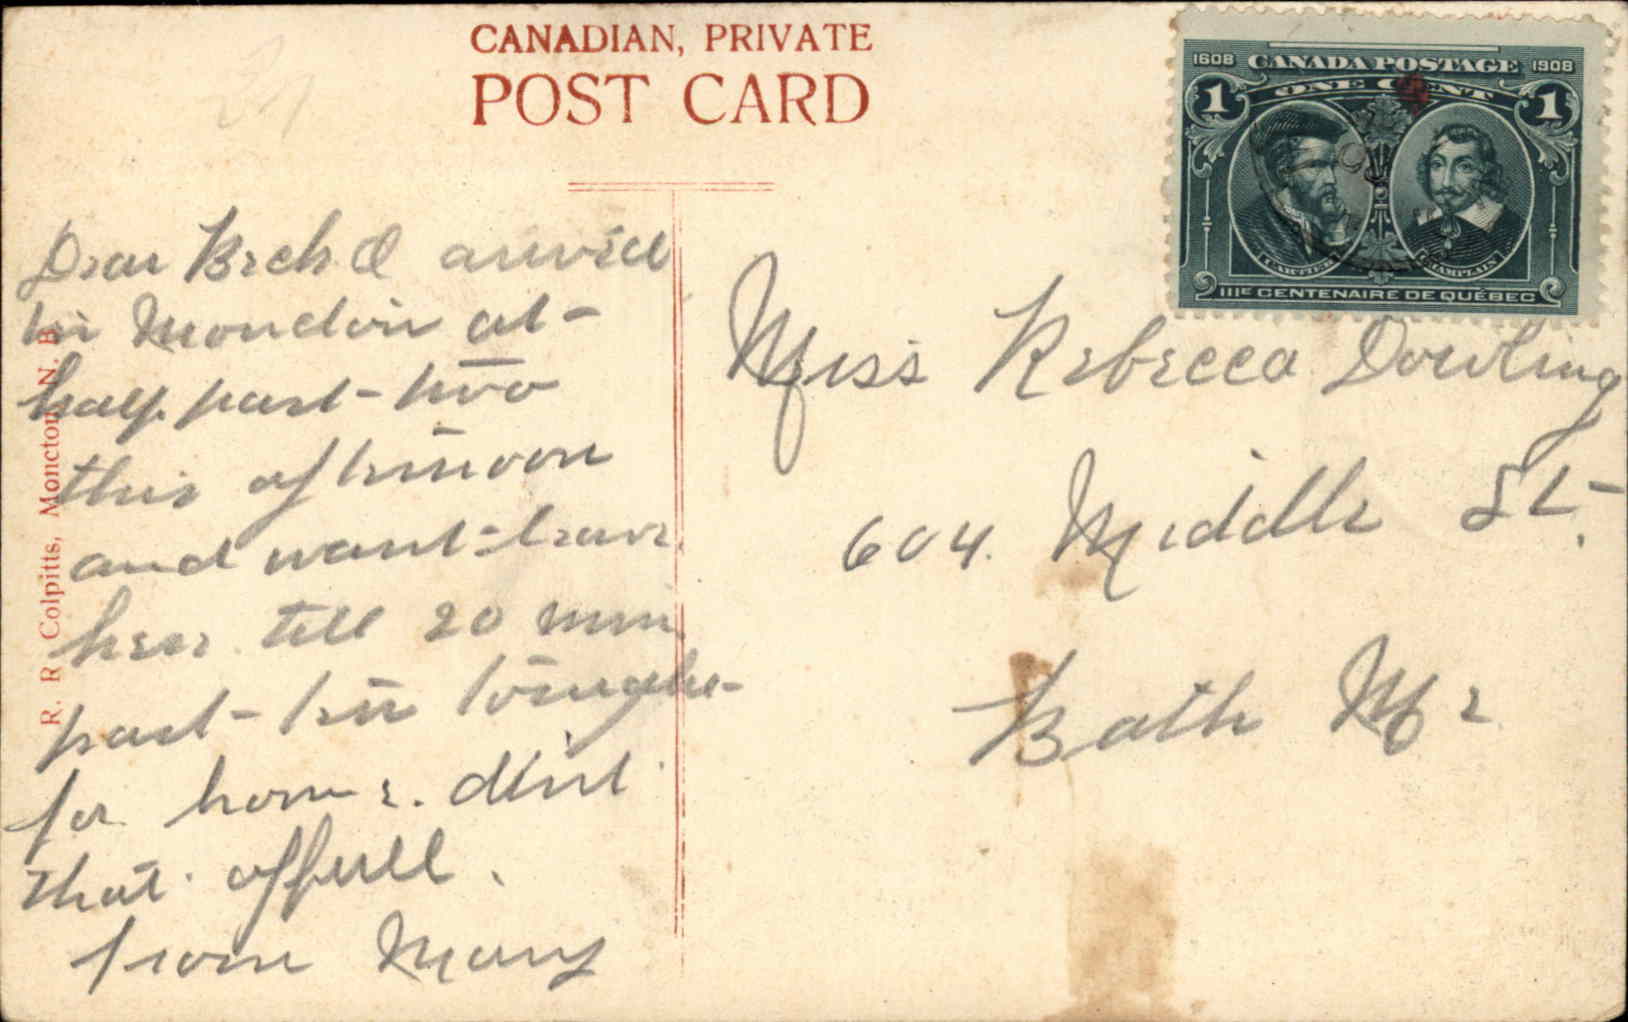 CANADIAN, PRIVATE
POST CARD
1608 CANADA POSTAGE 1908
1 ONE CENT 1
CARTIER CHAMPLAIN
IIIE CENTENAIRE DE QUÉBEC
R. R Colpitts, Moncton N. B.
Dear Beck I arrived
in Moncton at
half past two
this afternoon
and want leave
here till 20 min
past ten tonight
for home. dint
that offull.
from Mary
Miss Rebecca Dowling
604. Middle St.
Bath Me